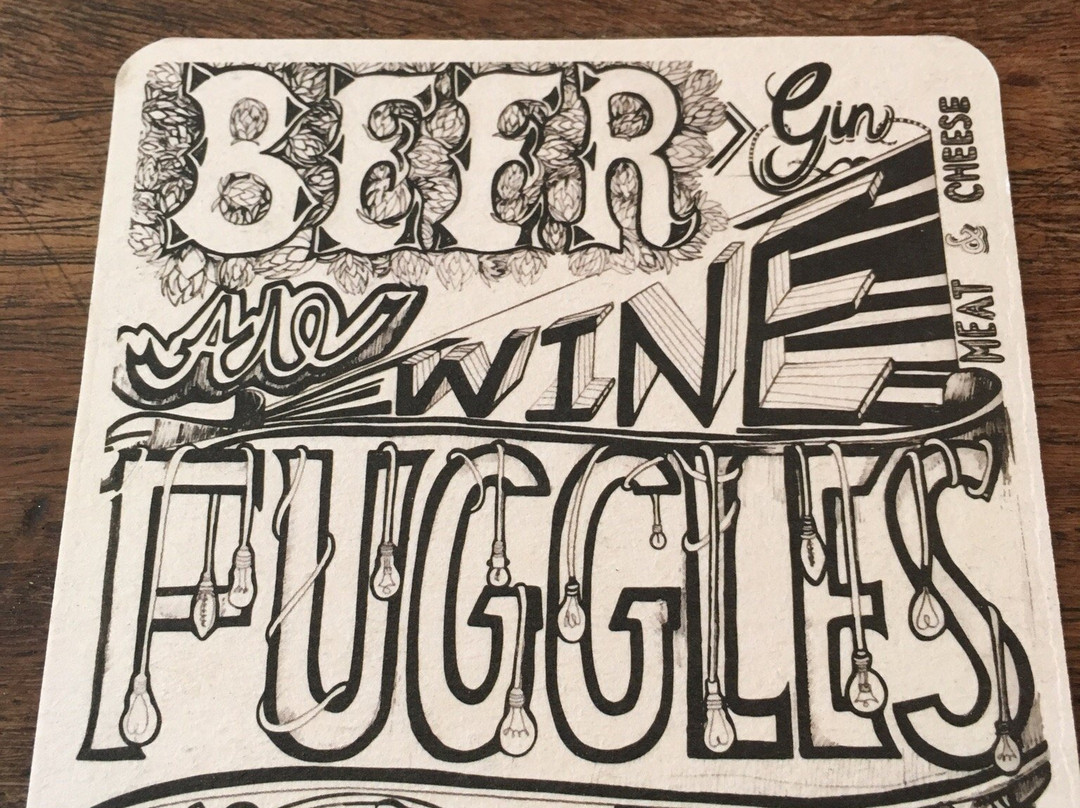 BEER
Gin
MEAT & CHEESE
AND
WINE
FUGGLES